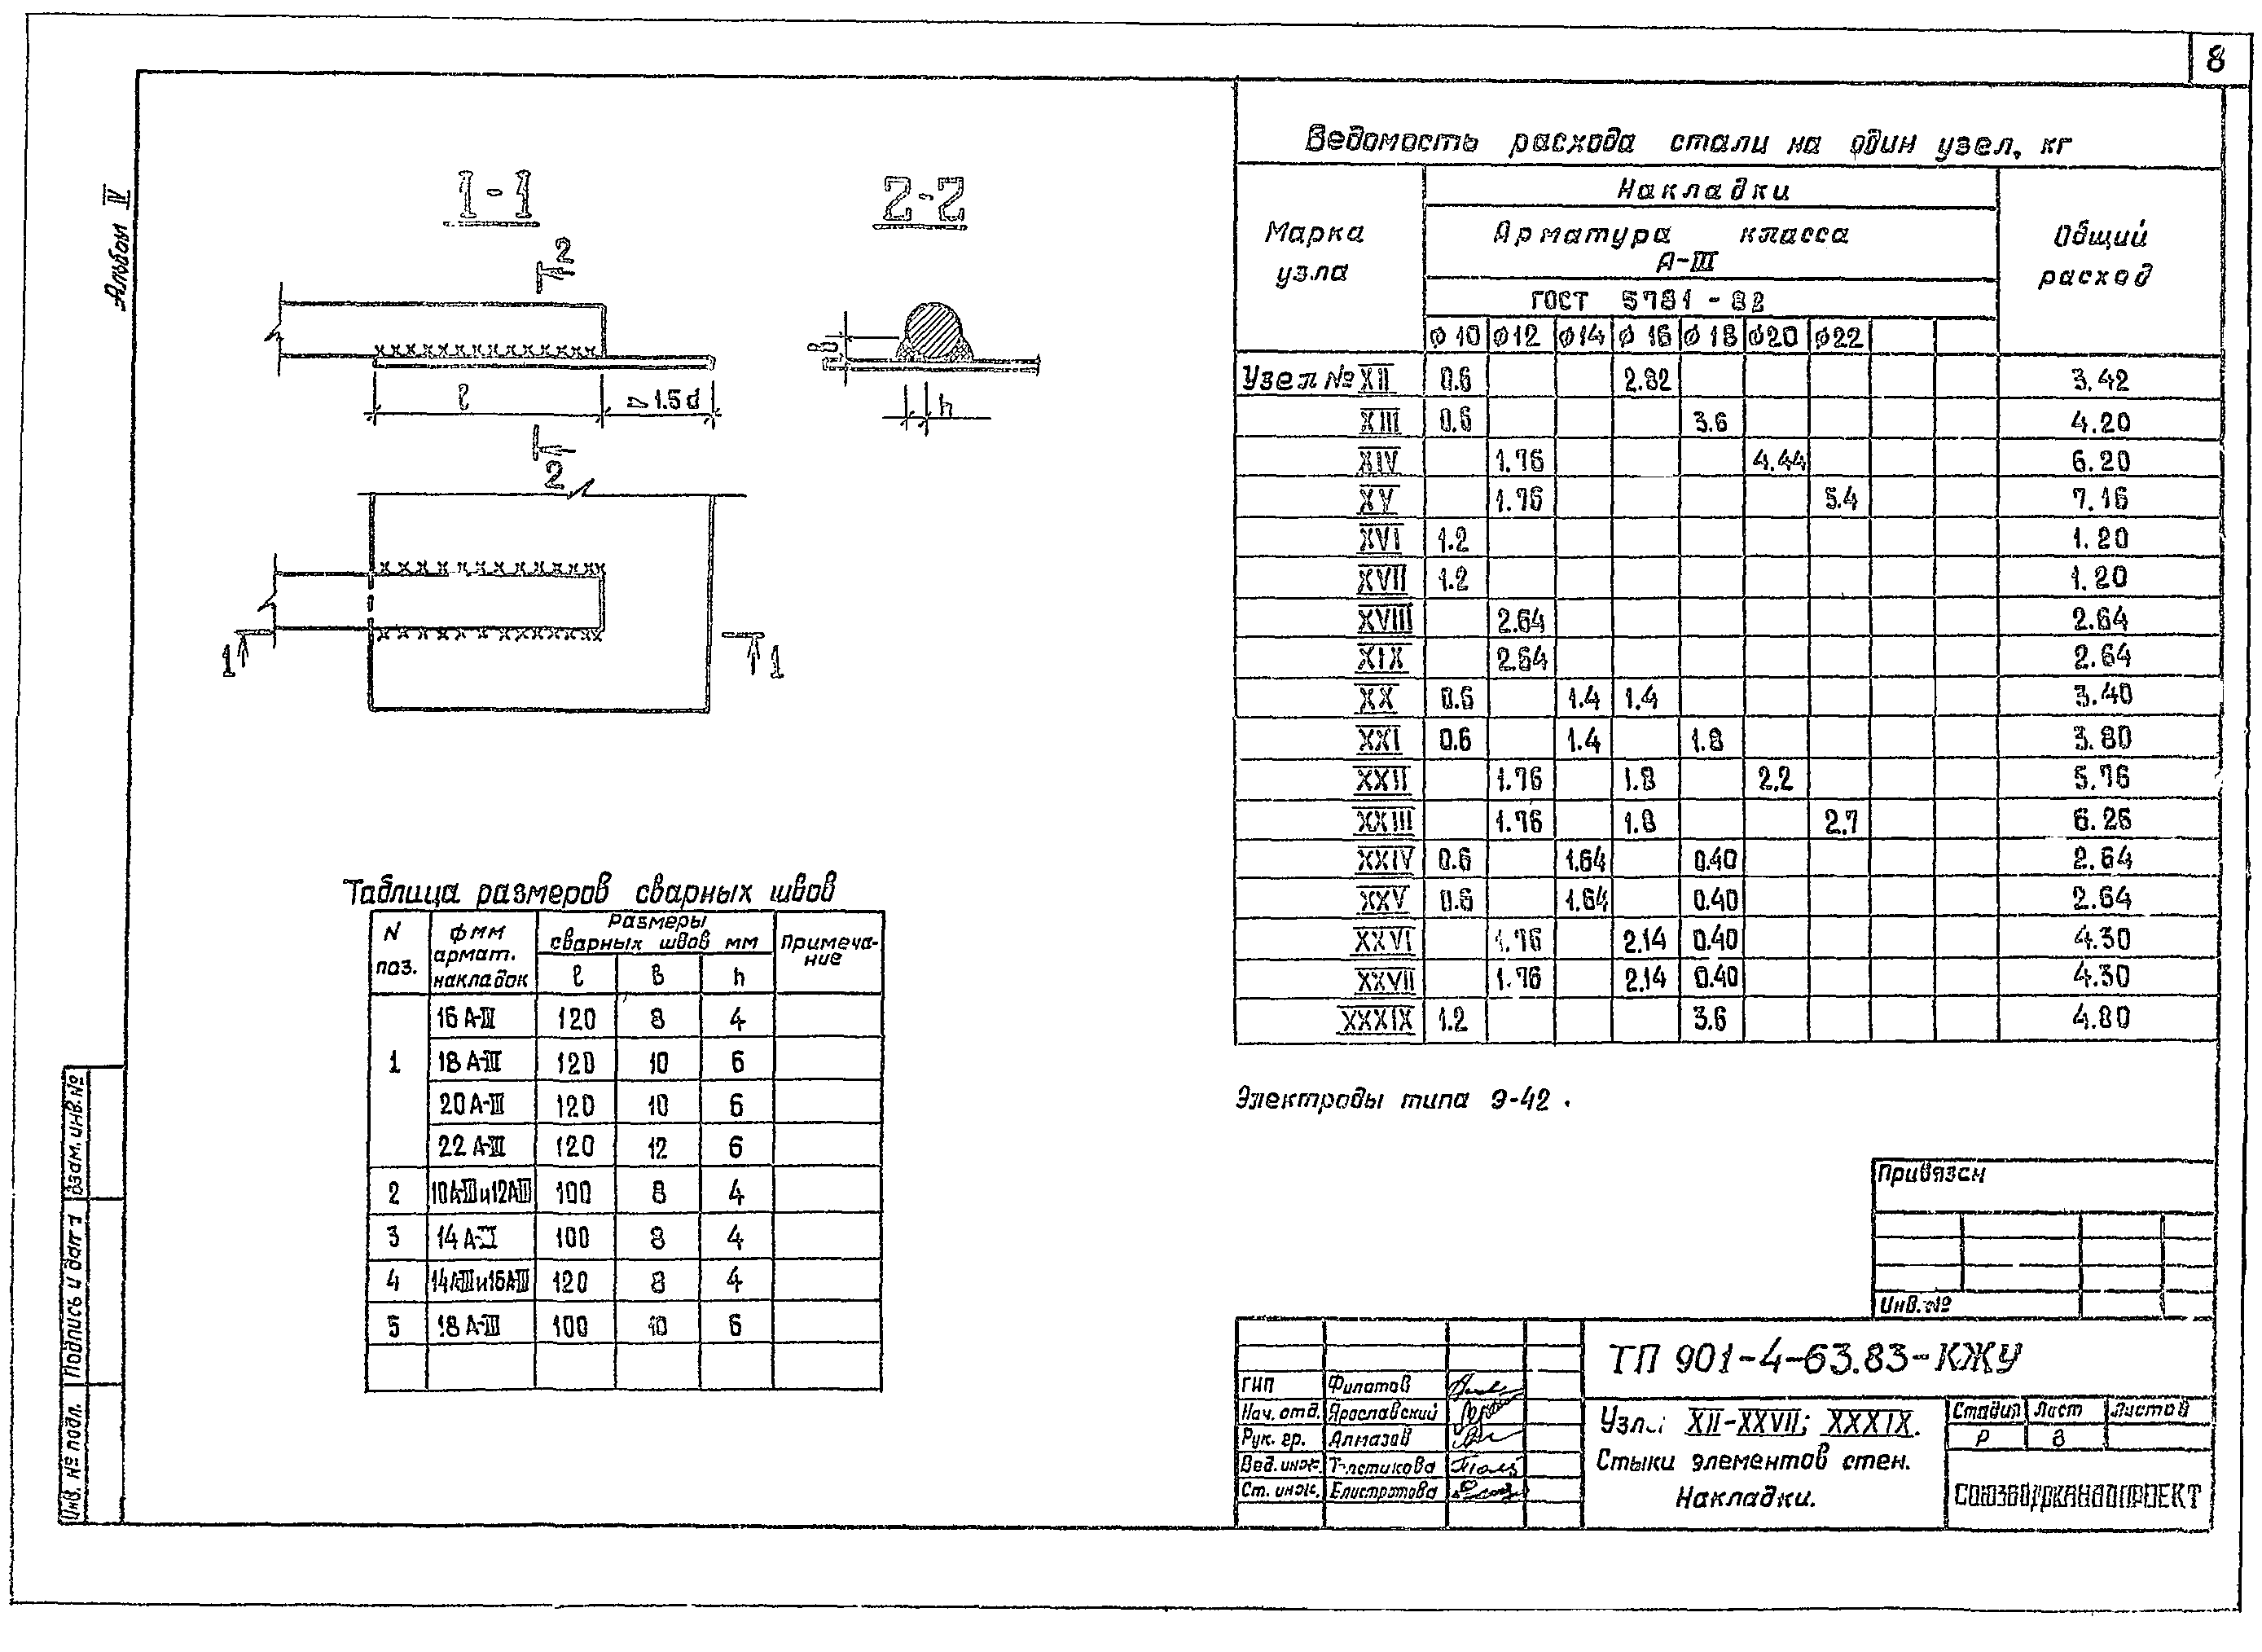 8
Альбом IV
1-1
2-2
2
l
1.5d
2
в
h
1
1
Ведомость расхода стали на один узел, кг
Марка узла
Накладки
Общий расход
Арматура класса
А-III
ГОСТ 5781-82
φ10 φ12 φ14 φ16 φ18 φ20 φ22
Узел № XII 0.6 2.82 3.42
XIII 0.6 3.6 4.20
XIV 1.76 4.44 6.20
XV 1.76 5.4 7.16
XVI 1.2 1.20
XVII 1.2 1.20
XVIII 2.64 2.64
XIX 2.64 2.64
XX 0.6 1.4 1.4 3.40
XXI 0.6 1.4 1.8 3.80
XXII 1.76 1.8 2.2 5.76
XXIII 1.76 1.8 2.7 6.26
XXIV 0.6 1.64 0.40 2.64
XXV 0.6 1.64 0.40 2.64
XXVI 1.76 2.14 0.40 4.30
XXVII 1.76 2.14 0.40 4.30
XXXIX 1.2 3.6 4.80
Электроды типа Э-42.
Таблица размеров сварных швов
N поз.
φ мм армат. накладок
Размеры сварных швов мм
Примечание
l в h
1
16 А-III 120 8 4
18 А-III 120 10 6
20 А-III 120 10 6
22 А-III 120 12 6
2 10А-III и 12А-III 100 8 4
3 14 А-III 100 8 4
4 14А-III и 16А-III 120 8 4
5 18 А-III 100 10 6
Взам. инв. №
Подпись и дат
Инв. № подл.
Привязан
Инв. №
ТП 901-4-63.83-КЖУ
ГИП Филатов
Нач. отд. Ярославский
Рук. гр. Алмазов
Вед. инж.
Ст. инж. Елистратова
Узлы XII-XXVII; XXXIX.
Стыки элементов стен.
Накладки.
Стадия Лист Листов
Р 8
СОЮЗВОДОКАНАЛПРОЕКТ